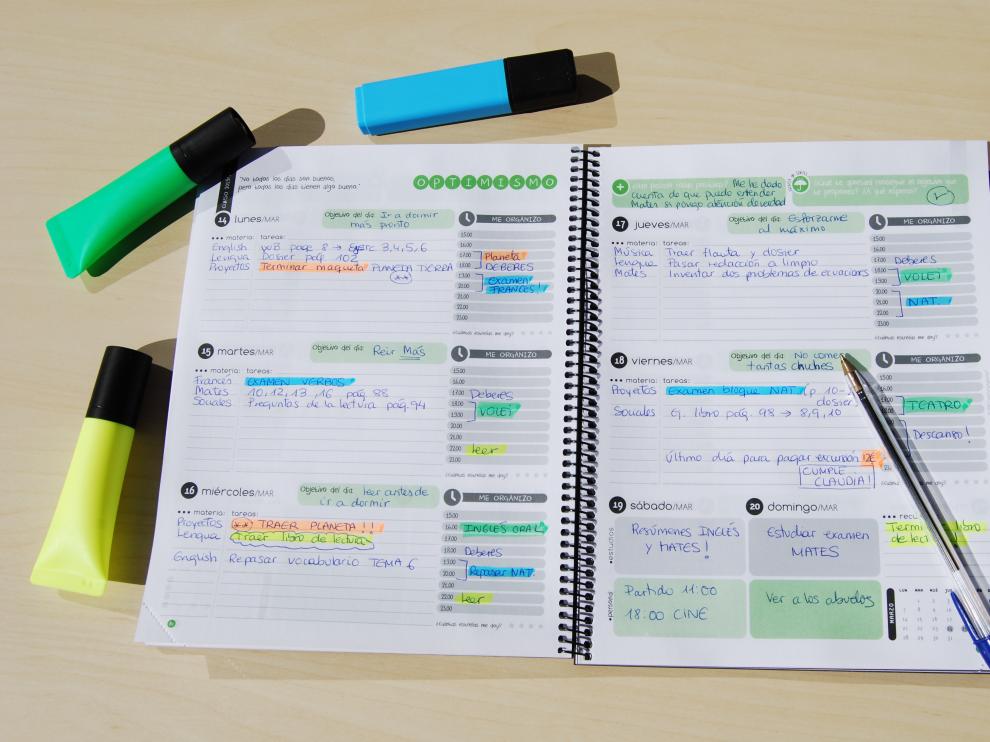 "No todos los días son buenos,
pero todos los días tienen algo bueno."
OPTIMISMO
14 lunes/MAR
Objetivo del día: Ir a dormir
más pronto
ME ORGANIZO
materia: tareas:
English WB page 8 → Exerc 3,4,5,6
Lengua Dosier pág. 102
Proyectos Terminar maqueta PLANETA TIERRA
(**)
15.00
16.00
17.00 Planeta
18.00 DEBERES
Examen
FRANCÉS!
22.00
23.00
15 martes/MAR
Objetivo del día: Reir Más
ME ORGANIZO
materia: tareas:
Francés EXAMEN VERBOS
Mates 10,12,13,16 pág. 88
Sociales Preguntas de la lectura pág. 94
15.00
16.00
17.00 Deberes
18.00
19.00 VOLEI
20.00
21.00
22.00 leer
23.00
16 miércoles/MAR
Objetivo del día: leer antes de
ir a dormir
ME ORGANIZO
materia: tareas:
Proyectos (**) TRAER PLANETA!!!
Lengua Traer libro de lectura
English Repasar vocabulario TEMA 6
15.00
16.00 INGLÉS ORAL
17.00
18.00 Deberes
19.00
20.00 Repasar NAT.
21.00
22.00 leer
23.00
Me he dado
cuenta de que puedo entender
Mates si pongo atención de verdad
17 jueves/MAR
Objetivo del día: Esforzarme
al máximo
ME ORGANIZO
materia: tareas:
Música Traer flauta y dosier
Lengua Pasar redacción a limpio
Mates Inventar dos problemas de ecuaciones
15.00
16.00
17.00 Deberes
18.00 VOLEI
19.00
20.00
21.00 NAT.
22.00
23.00
18 viernes/MAR
Objetivo del día: No comer
tantas chuches
ME ORGANIZO
materia: tareas:
Proyectos Examen bloque NAT. (p. 10-
dosier)
Sociales Ej. libro pág. 98 → 8,9,10
Último día para pagar excursión 12€
CUMPLE
CLAUDIA!
15.00
16.00
17.00
TEATRO
Descanso!
19 sábado/MAR
estudios
Resúmenes INGLÉS
y MATES!
personal
Partido 11:00
18:00 CINE
20 domingo/MAR
Estudiar examen
MATES
Ver a los abuelos
libro
de
MARZO